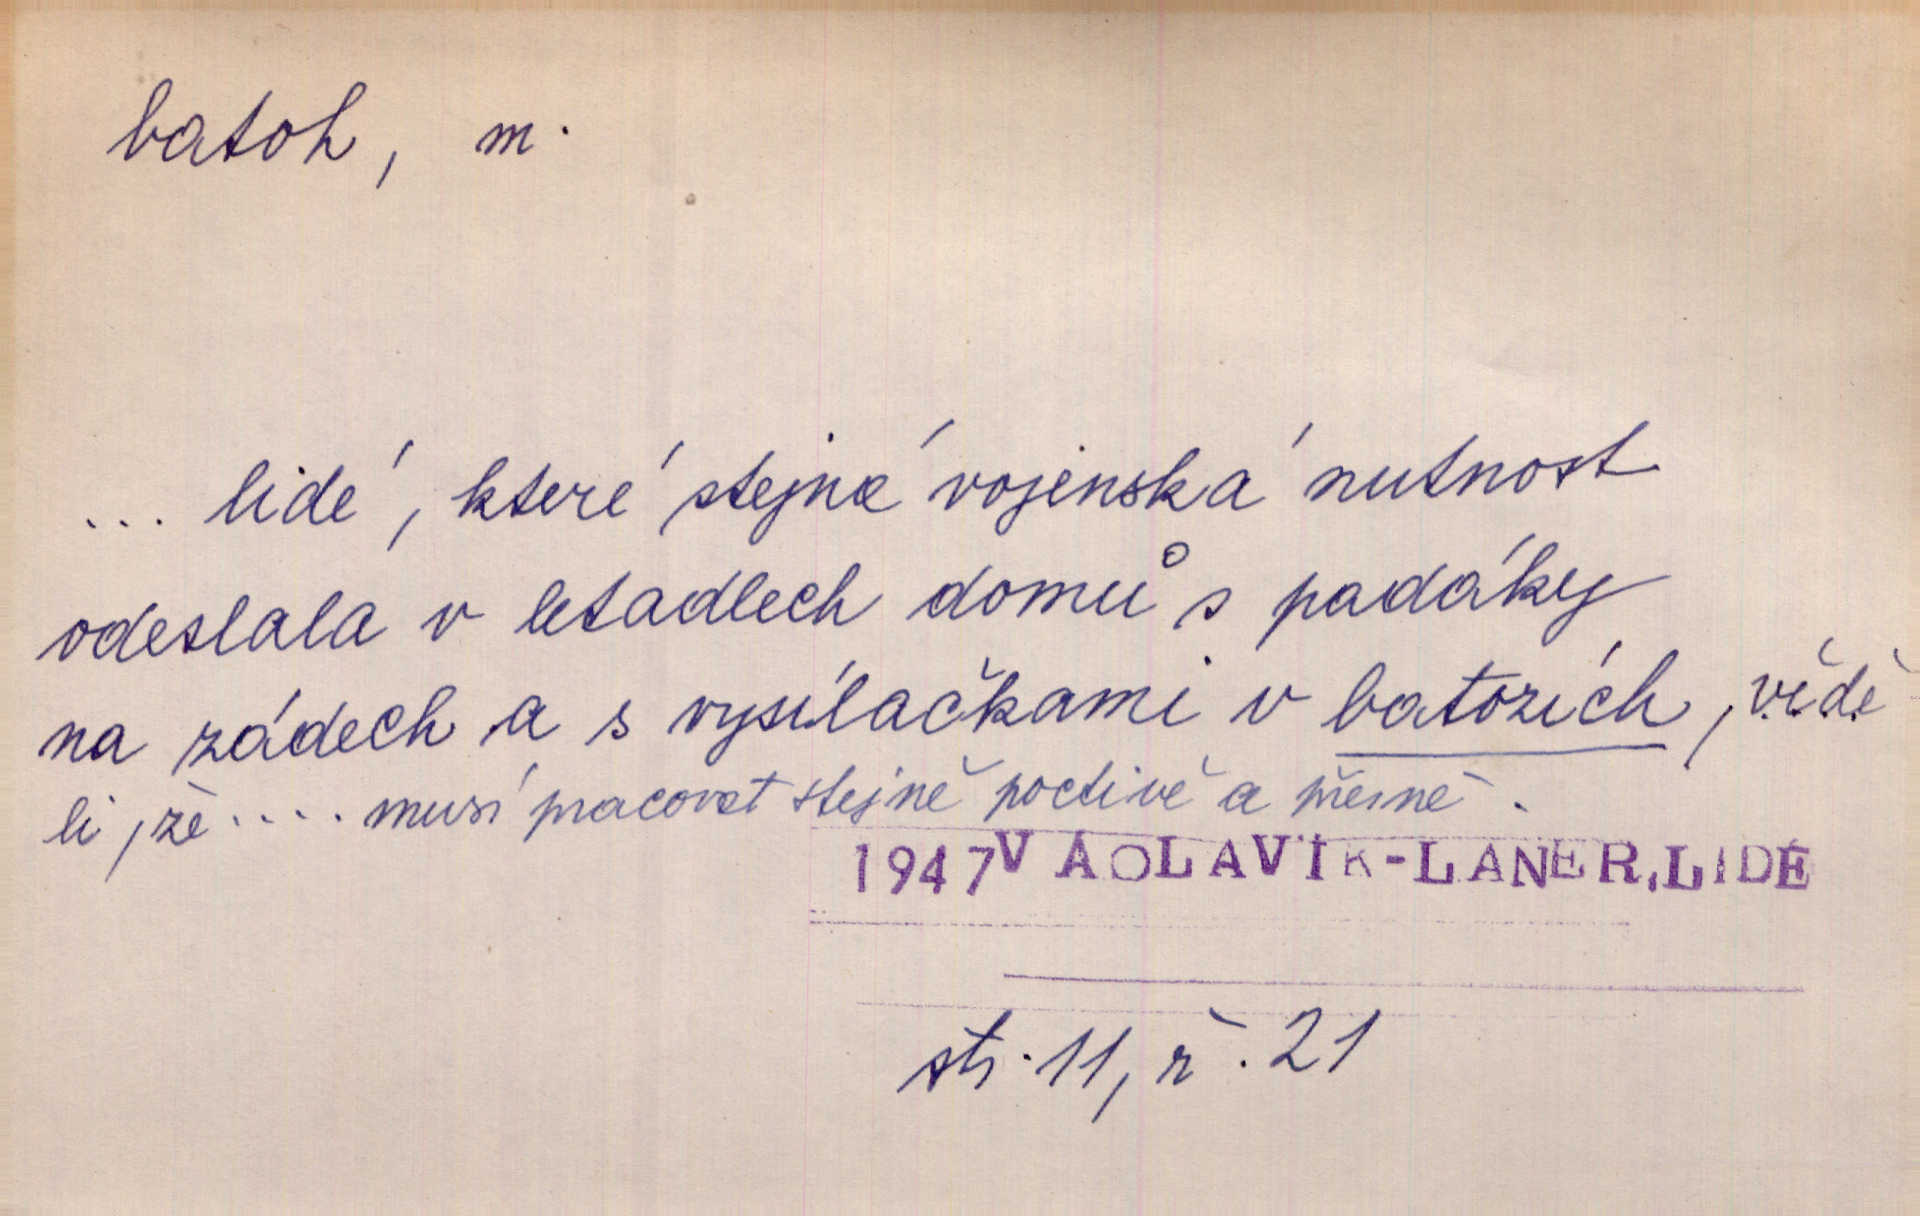 batoh, m.
... lidé, které stejná vojenská nutnost
odeslala v letadlech domů s padáky
na zádech a s vysílačkami v batozích, vědě
li, že .... musí pracovat stejně poctivě a přesně.
1947 VÁCLAVÍK-LANER, LIDÉ
str. 11, ř. 21